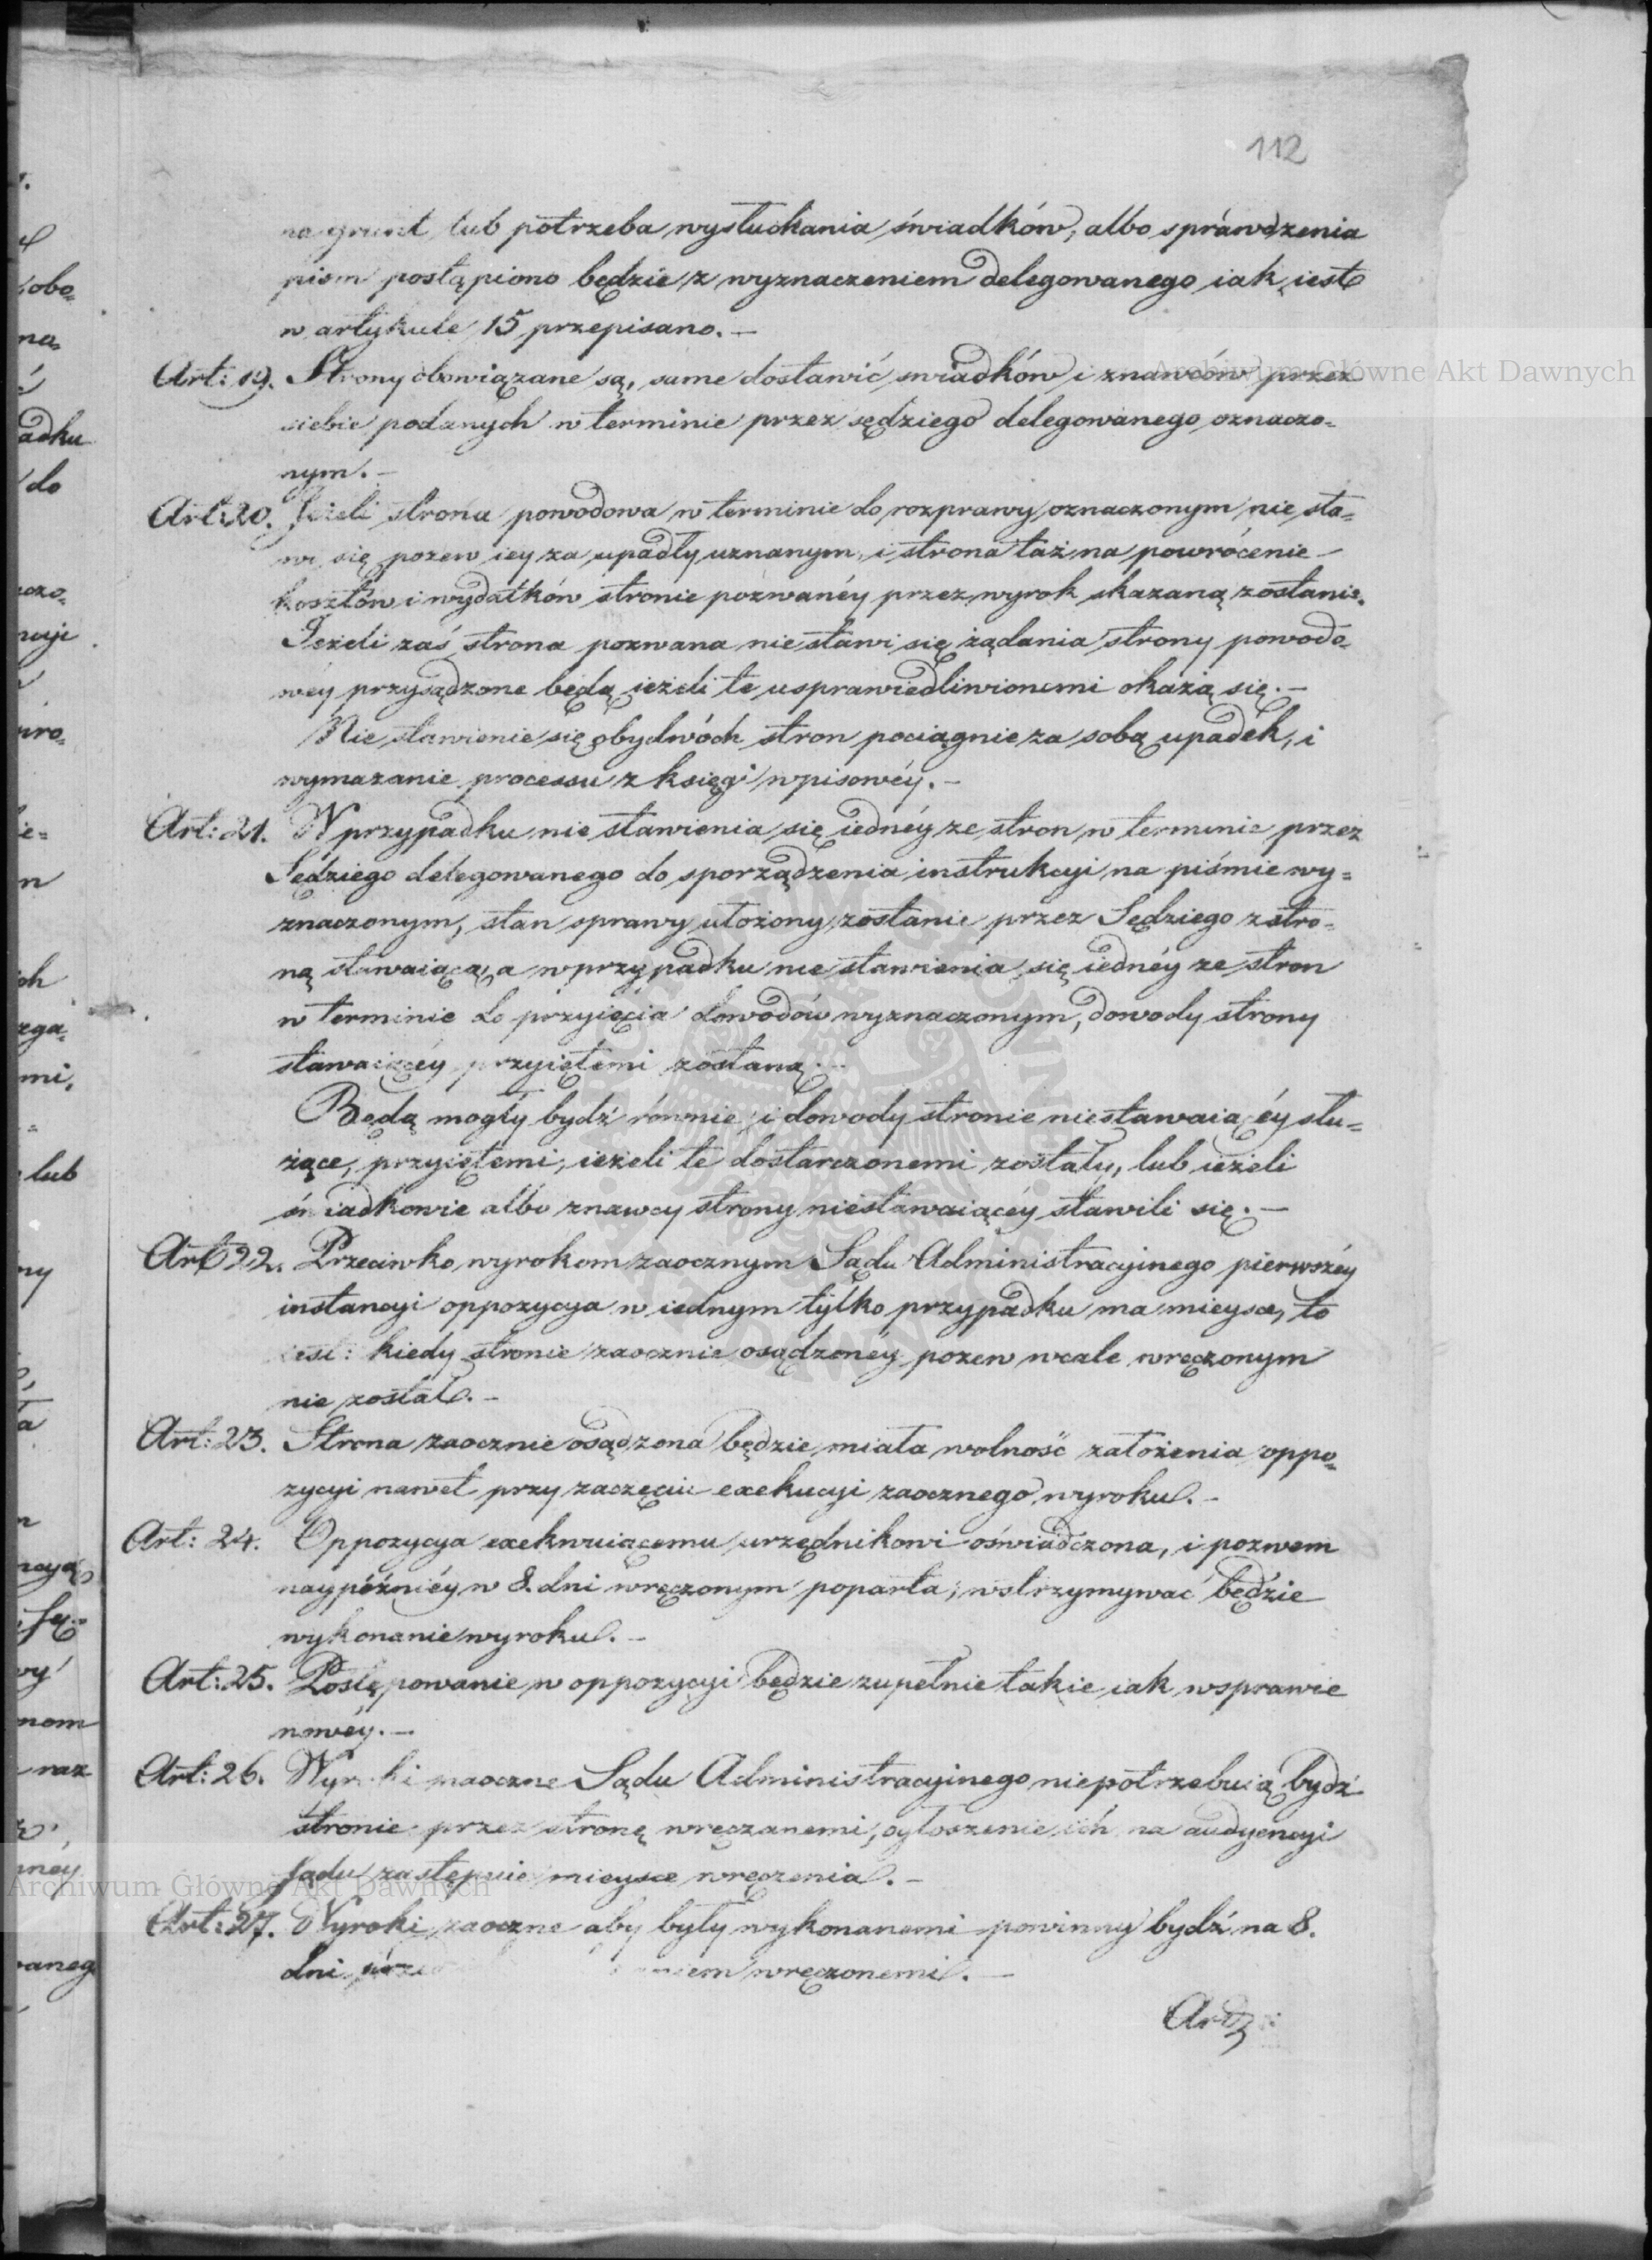 112
na grunt lub potrzeba wysłuchania świadków, albo sprawdzenia
pism postąpiono będzie z wyznaczeniem delegowanego iak iest
w artykule 15 przepisano. –
Art: 19. Strony obowiązane są, same dostawić swiadków i znawców przez
siebie podanych w terminie przez sędziego delegowanego oznaczo=
nym. –
Art: 20. Jeżeli strona powodowa w terminie do rozprawy oznaczonym nie sta=
wi się pozew iey za upadły uznanym, i strona taż na powrócenie
kosztów i wydatków stronie pozwanéy przez wyrok skazaną zostanie.
Jeżeli zaś strona pozwana nie stawi się żądania strony powodo=
wéy przysądzone będą ieżeli te usprawiedliwionemi okażą się. –
Nie stawienie się obydwóch stron pociągnie za sobą upadek, i
wymazanie processu z księgi wpisowéy. –
Art: 21. W przypadku nie stawienia się iednéy ze stron w terminie przez
Sędziego delegowanego do sporządzenia instrukcyi na piśmie wy=
znaczonym, stan sprawy ułożony zostanie przez Sędziego z stro=
ną stawaiącą, a w przypadku nie stawienia się iednéy ze stron
w terminie do przyięcia dowodów wyznaczonym, dowody strony
stawaiącéy przyiętemi zostaną. –
Będą mogły bydź równie i dowody stronie niestawaiącéy słu=
żące, przyiętemi, ieżeli te dostarczonemi zostały, lub ieżeli
świadkowie albo znawcy strony niestawaiącéy stawili się. –
Art: 22. Przeciwko wyrokom zaocznym Sądu Administracyinego pierwszéy
instancyi oppozycya w iednym tylko przypadku ma mieysce, to
iest: kiedy stronie zaocznie osądzonéy pozew wcale wręczonym
nie został. –
Art: 23. Strona zaocznie osądzona będzie miała wolność założenia oppo=
zycyi nawet przy zaczęciu exekucyi zaocznego wyroku. –
Art: 24. Oppozycya exekwuiącemu urzędnikowi oświadczona, i pozwem
naypóźniéy w 8. dni wręczonym poparta, wstrzymywać będzie
wykonanie wyroku. –
Art: 25. Postępowanie w oppozycyi będzie zupełnie takie iak w sprawie
nowéy. –
Art: 26. Wyroki naoczne Sądu Administracyinego niepotrzebuią bydź
stronie przez stronę wręczanemi, ogłoszenie ich na audyencyi
sądu zastępuie mieysce wręczenia. –
Art: 27. Wyroki zaoczne aby były wykonanemi powinny bydź na 8.
dni przed wręczonemi. –
Art:
Archiwum Główne Akt Dawnych
Archiwum Główne Akt Dawnych